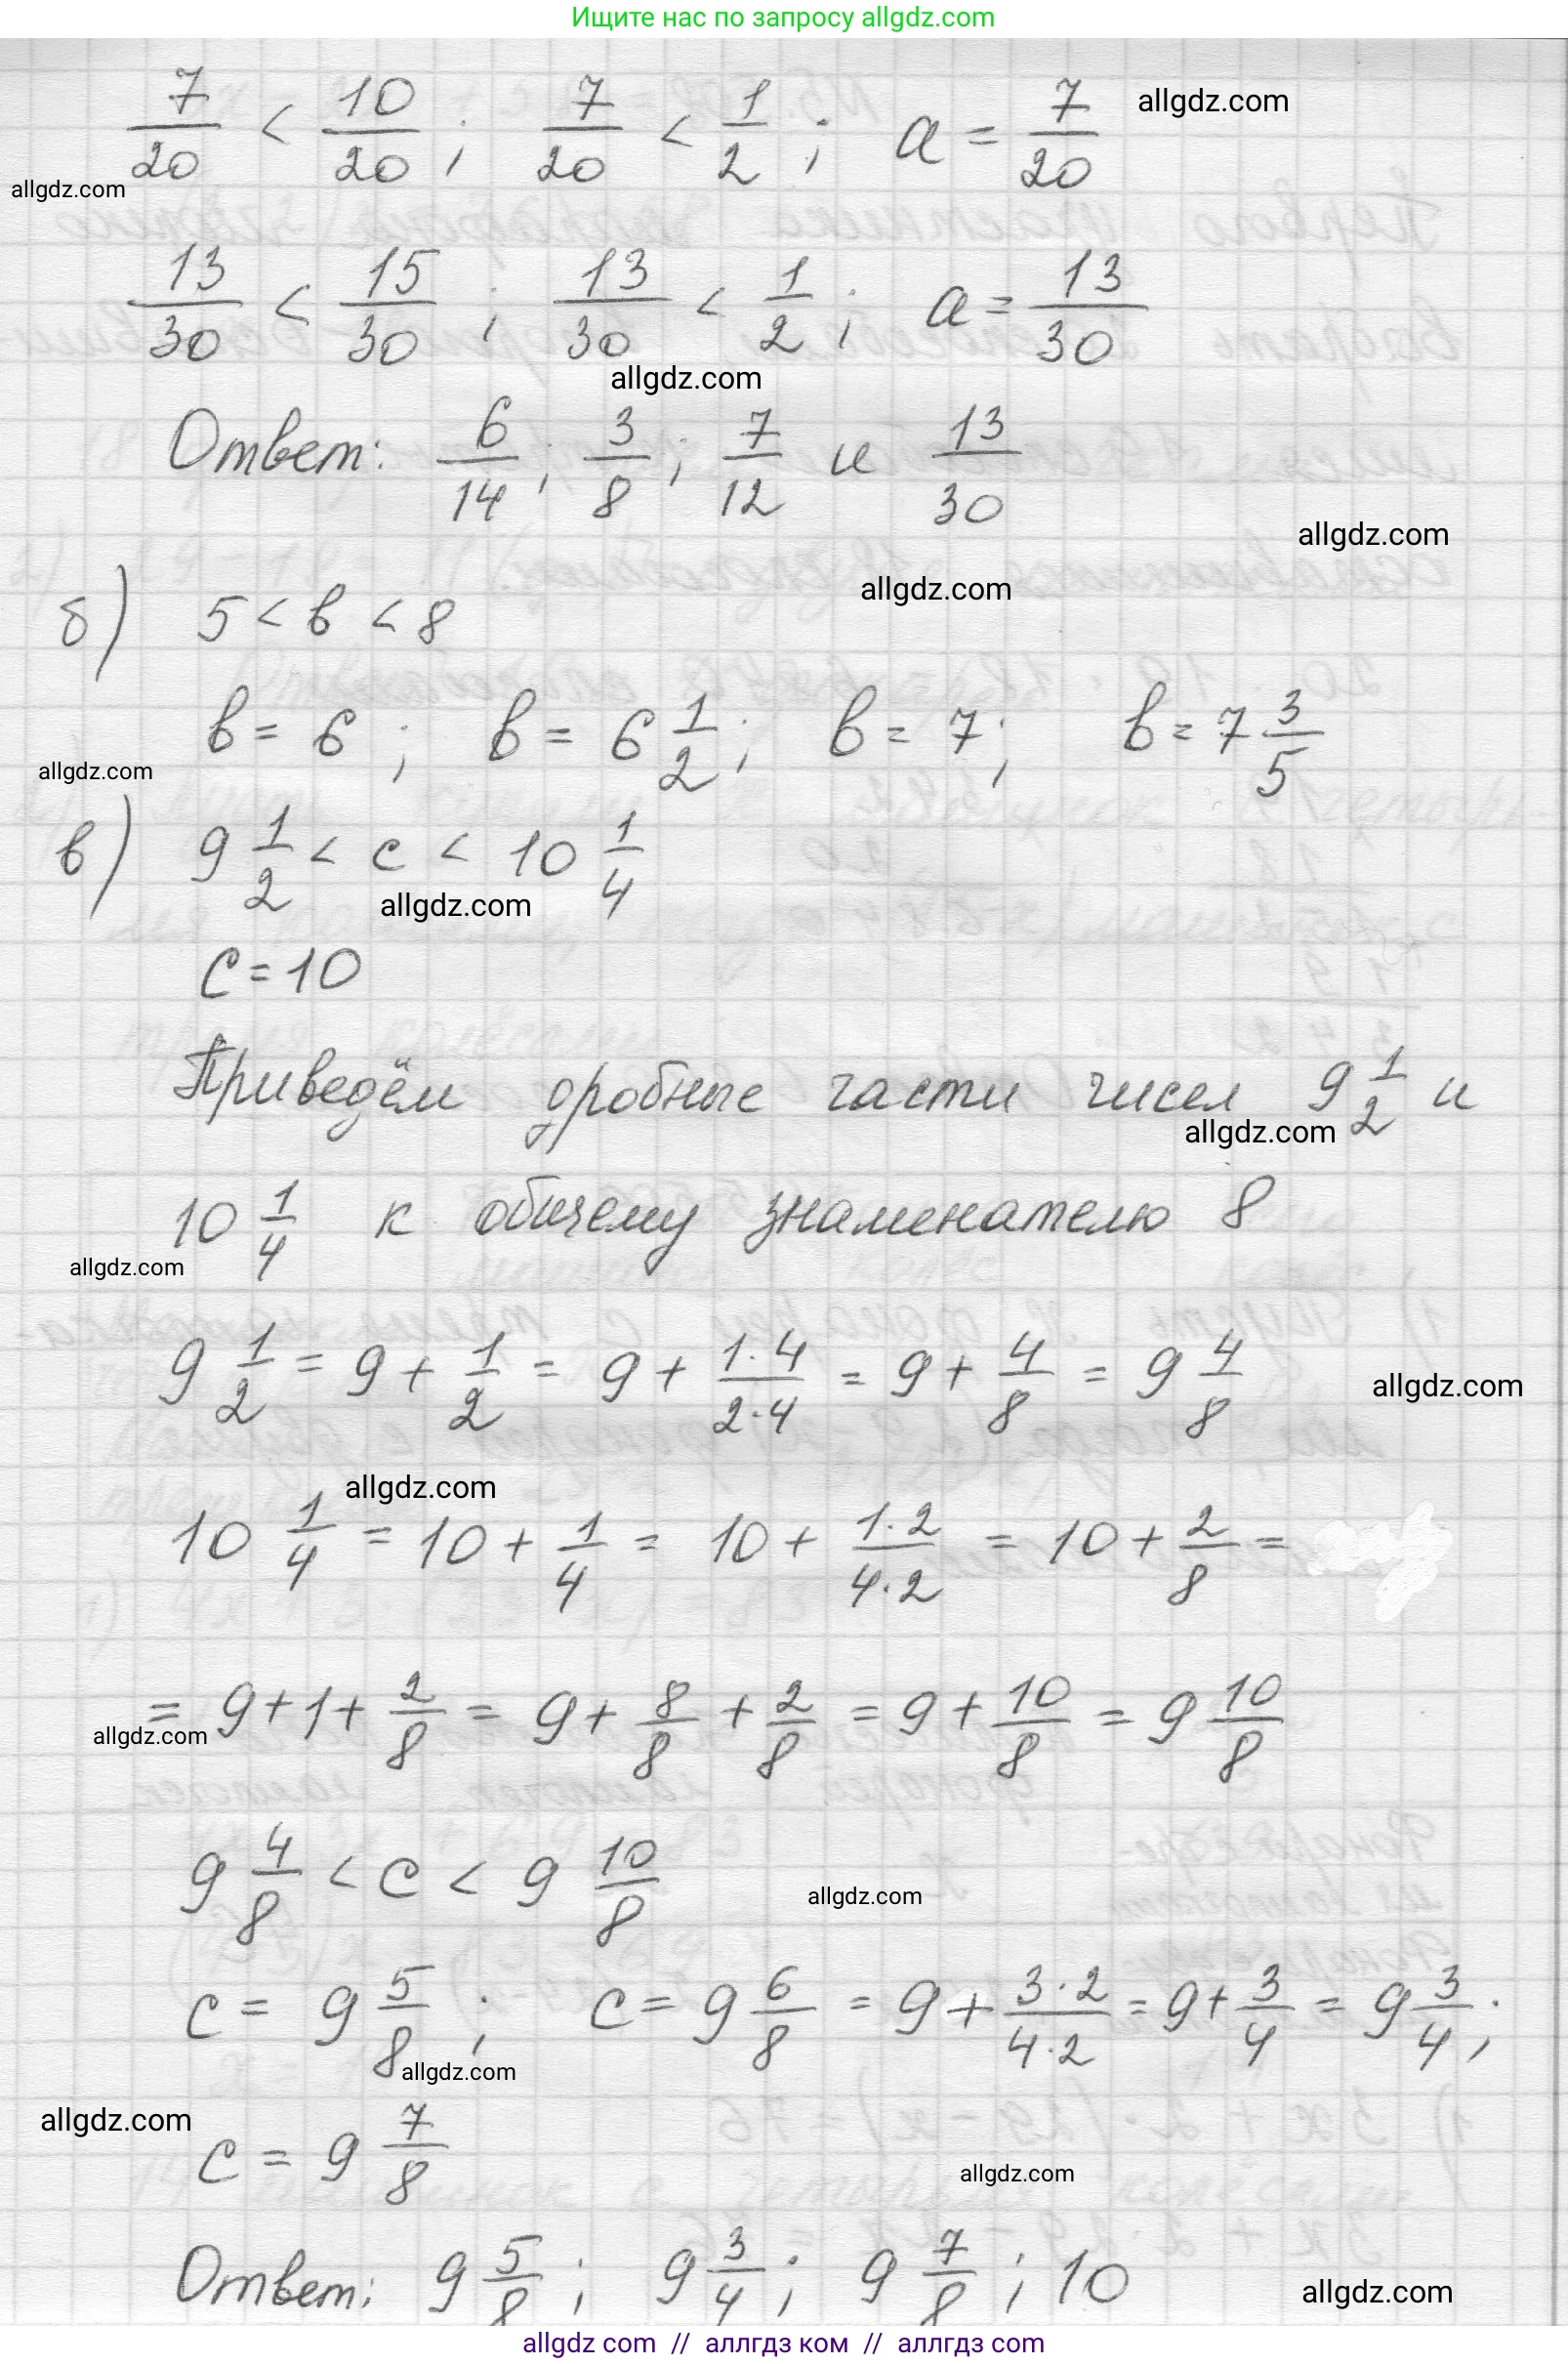 Ищите нас по запросу allgdz.com
7/20 < 10/20 ; 7/20 < 1/2 ; a = 7/20 allgdz.com
allgdz.com
13/30 < 15/30 ; 13/30 < 1/2 ; a = 13/30
allgdz.com
Ответ: 6/14 ; 3/8 ; 7/12 и 13/30
allgdz.com
allgdz.com
б) 5 < b < 8
b = 6 ; b = 6 1/2 ; b = 7 ; b = 7 3/5
allgdz.com
в) 9 1/2 < c < 10 1/4
allgdz.com
c = 10
Приведём дробные части чисел 9 1/2 и
allgdz.com
10 1/4 к общему знаменателю 8
allgdz.com
9 1/2 = 9 + 1/2 = 9 + 1·4/2·4 = 9 + 4/8 = 9 4/8
allgdz.com
allgdz.com
10 1/4 = 10 + 1/4 = 10 + 1·2/4·2 = 10 + 2/8 =
= 9 + 1 + 2/8 = 9 + 8/8 + 2/8 = 9 + 10/8 = 9 10/8
allgdz.com
9 4/8 < c < 9 10/8
allgdz.com
c = 9 5/8 ; c = 9 6/8 = 9 + 3·2/4·2 = 9 + 3/4 = 9 3/4 ;
allgdz.com
allgdz.com
c = 9 7/8
allgdz.com
Ответ: 9 5/8 ; 9 3/4 ; 9 7/8 ; 10
allgdz.com
allgdz com // аллгдз ком // аллгдз com